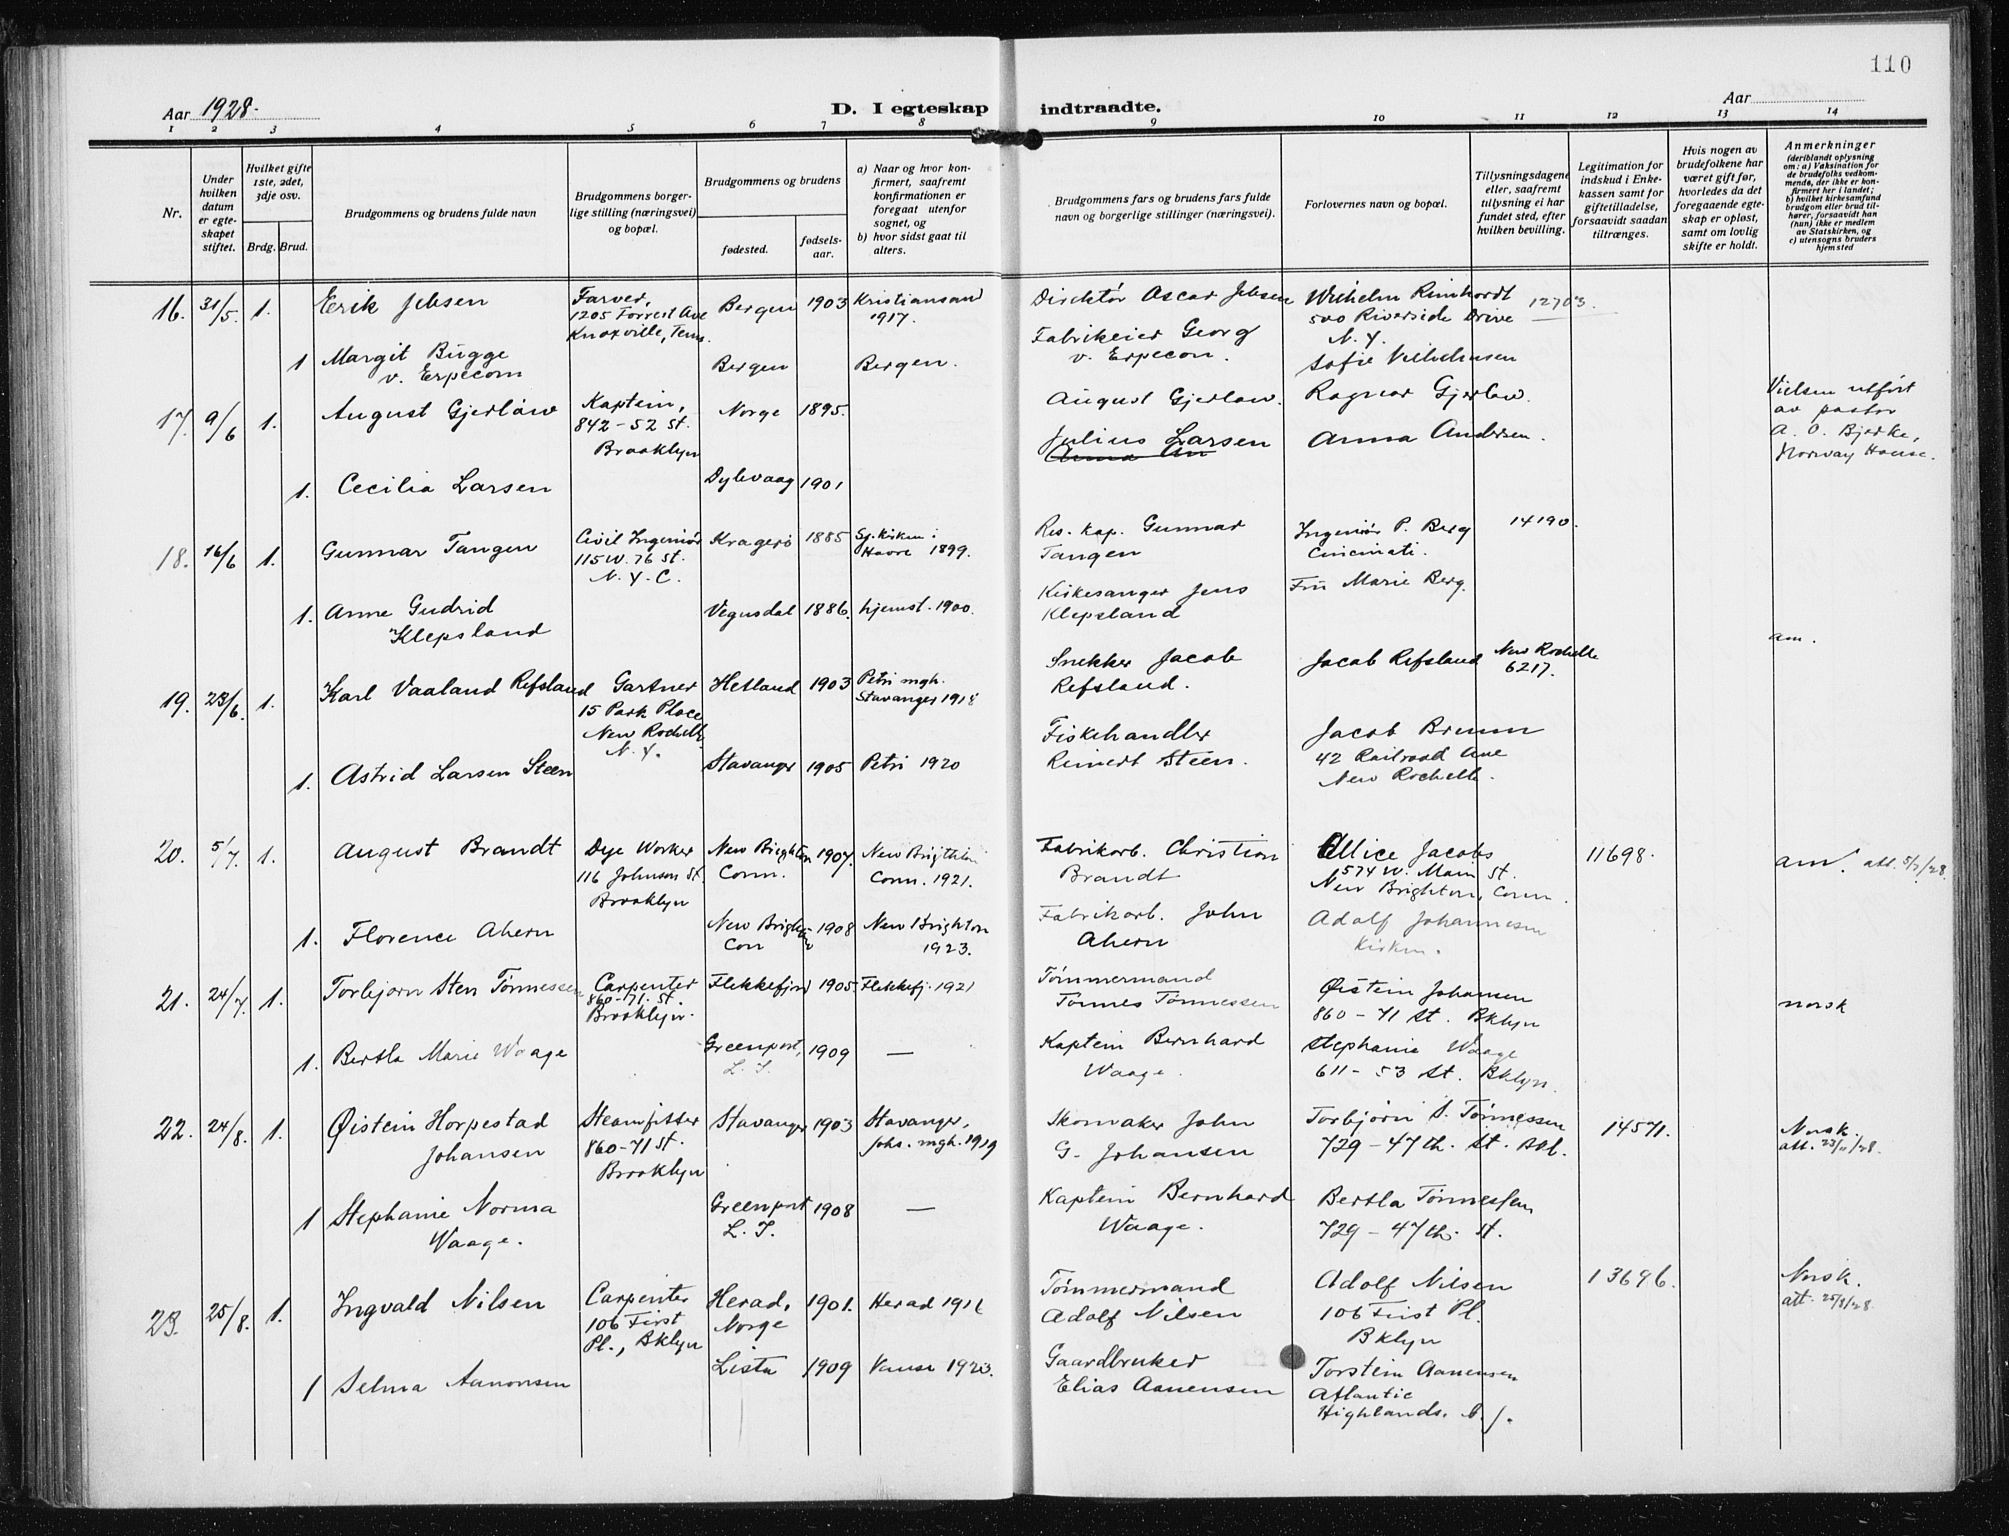 110
Aar 1928.
D. I egteskap indtraadte.
Aar
1 2 3 4 5 6 7 8 9 10 11 12 13 14
Nr.
Under hvilken datum er egteskapet stiftet.
Hvilket gifte 1ste, 2det, 3dje osv.
Brdg. Brud.
Brudgommens og brudens fulde navn
Brudgommens borgerlige stilling (næringsvei) og bopæl.
Brudgommens og brudens
fødested.
fødselsaar.
a) Naar og hvor konfirmert, saafremt konfirmationen er foregaat utenfor sognet, og
b) hvor sidst gaat til alters.
Brudgommens fars og brudens fars fulde navn og borgerlige stillinger (næringsvei).
Forlovernes navn og bopæl.
Tillysningsdagene eller, saafremt tillysning ei har fundet sted, efter hvilken bevilling.
Legitimation for indskud i Enkekassen samt for giftetilladelse, forsaavidt saadan tiltrænges.
Hvis nogen av brudefolkene har været gift før, hvorledes da det foregaaende egteskap er opløst, samt om lovlig skifte er holdt.
Anmerkninger
(deriblandt oplysning om: a) Vaksination for de brudefolks vedkommende, der ikke er konfirmert her i landet; b) hvilket kirkesamfund brudgom eller brud tilhører, forsaavidt han (hun) ikke er medlem av Statskirken, og c) utensogns bruders hjemsted
16. 31/5. 1. Erik Jebsen
Farver,
1205 Forrest Ave
Knoxville, Tenn.
Bergen 1903 Kristiansand
1917.
Direktør Oscar Jebsen
Wilhelm Reinhardt
500 Riverside Drive
N. Y.
12703.
1 Margit Bugge
v. Erpecom
Bergen
Bergen.
Fabrikeier Georg
v. Erpecom.
Sofie
17. 9/6 1. August Gjerløw
Kaptein,
842-52 St.
Brooklyn
Norge 1895.
August Gjerløw.
Ragnar Gjerløw.
Vielsen utført
av pastor
A. O. Bjerke,
Norway House.
1. Cecilia Larsen
Dybvaag 1901
Julius Larsen
Anna Andersen.
18. 16/6 1. Gunnar Tangen
Civil Ingeniør
115 W. 76 St.
N. Y. C.
Kragerø 1885 Sj. kirken i
Havre 1899.
Res. kap. Gunnar
Tangen
Ingeniør P. Berg
Cincinati.
14190.
1. Anne Gudrid
Klepsland
Vegusdal 1886. hjemst. 1900.
Kirkesanger Jens
Klepsland
Fru Marie Berg.
am.
19. 23/6. 1. Karl Vaaland Refsland
Gartner
15 Park Place
New Rochelle
N. Y.
Hetland 1903 Petri mgh.
Stavanger 1918
Snekker Jacob
Refsland.
Jacob Refsland
New Rochelle
6217.
1. Astrid Larsen Steen
Stavanger 1905 Petri 1920
Fiskehandler
Reinert Steen.
Jacob
42 Railroad Ave
New Rochelle.
20. 5/7. 1. August Brandt
Dye Worker
116 Johnson St.
Brooklyn
New Brighton
Conn.
1907.
New Brigthton
Conn. 1921.
Fabrikarb. Christian
Brandt
Allice Jacobs
574 W. Main St.
New Brighton, Conn.
11698.
am. att. 5/7/28.
1. Florence Ahern
New Brighton
Con
1908
New Brighton
1923.
Fabrikarb. John
Ahern
Adolf Johannesen
Kirken.
21. 24/7. 1. Torbjørn Sten Tønnessen
Carpenter
860-71. St.
Brooklyn.
Flekkefjord 1905 Flekkefj. 1921
Tømmermand
Tønnes Tønnessen
Øistein Johansen
860-71 St. Bklyn
norsk
1. Bertla Marie Waage
Greenport,
L. I.
1909 —
Kaptein Bernhard
Waage.
Stephanie Waage
611-53 St. Bklyn.
22. 24/8. 1. Øistein Horpestad
Johansen
Steamfitter
860-71 St.
Brooklyn
Stavanger 1903 Stavanger,
Johs. mgh. 1919
Skomaker John
G. Johansen
Torbjørn S. Tønnessen
729-47th. St. Bkl.
14571.
Norsk.
att. 23/11/28.
1 Stephanie Norma
Waage.
Greenport
L. I.
1908 —
Kaptein Bernhard
Waage.
Bertla Tønnessen
729-47th. St.
23. 25/8. 1. Ingvald Nilsen
Carpenter
106 First
Pl., Bklyn
Herad,
Norge
1901. Herad 1916
Tømmermand
Adolf Nilsen
Adolf Nilsen
106 First Pl.
Bklyn
13696.
Norsk.
att. 25/8/28.
1 Selma Aanonsen
Lista 1909 Vanse 1923.
Gaardbruker
Elias Aanensen
Torstein Aanensen
Atlantic
Highlands. N. J.